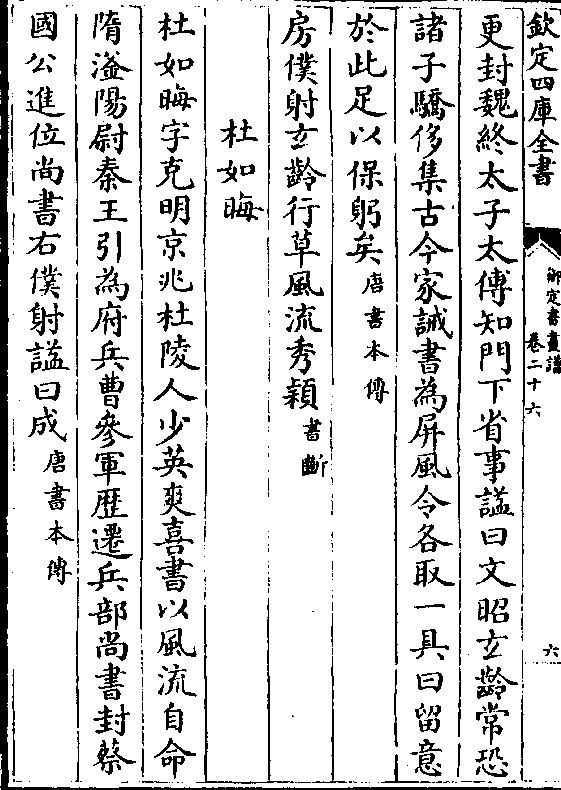 欽定四庫全書
御定書畫譜
卷二十六
六
更封魏終太子太傅知門下省事謚曰文昭玄齡常恐
諸子驕侈集古今家誡書為屏風令各取一具曰留意
於此足以保躬矣唐書本傳
房僕射玄齡行草風流秀穎書斷
杜如晦
杜如晦字克明京兆杜陵人少英爽喜書以風流自命
隋滏陽尉秦王引為府兵曹參軍歷遷兵部尚書封蔡
國公進位尚書右僕射謚曰成唐書本傳